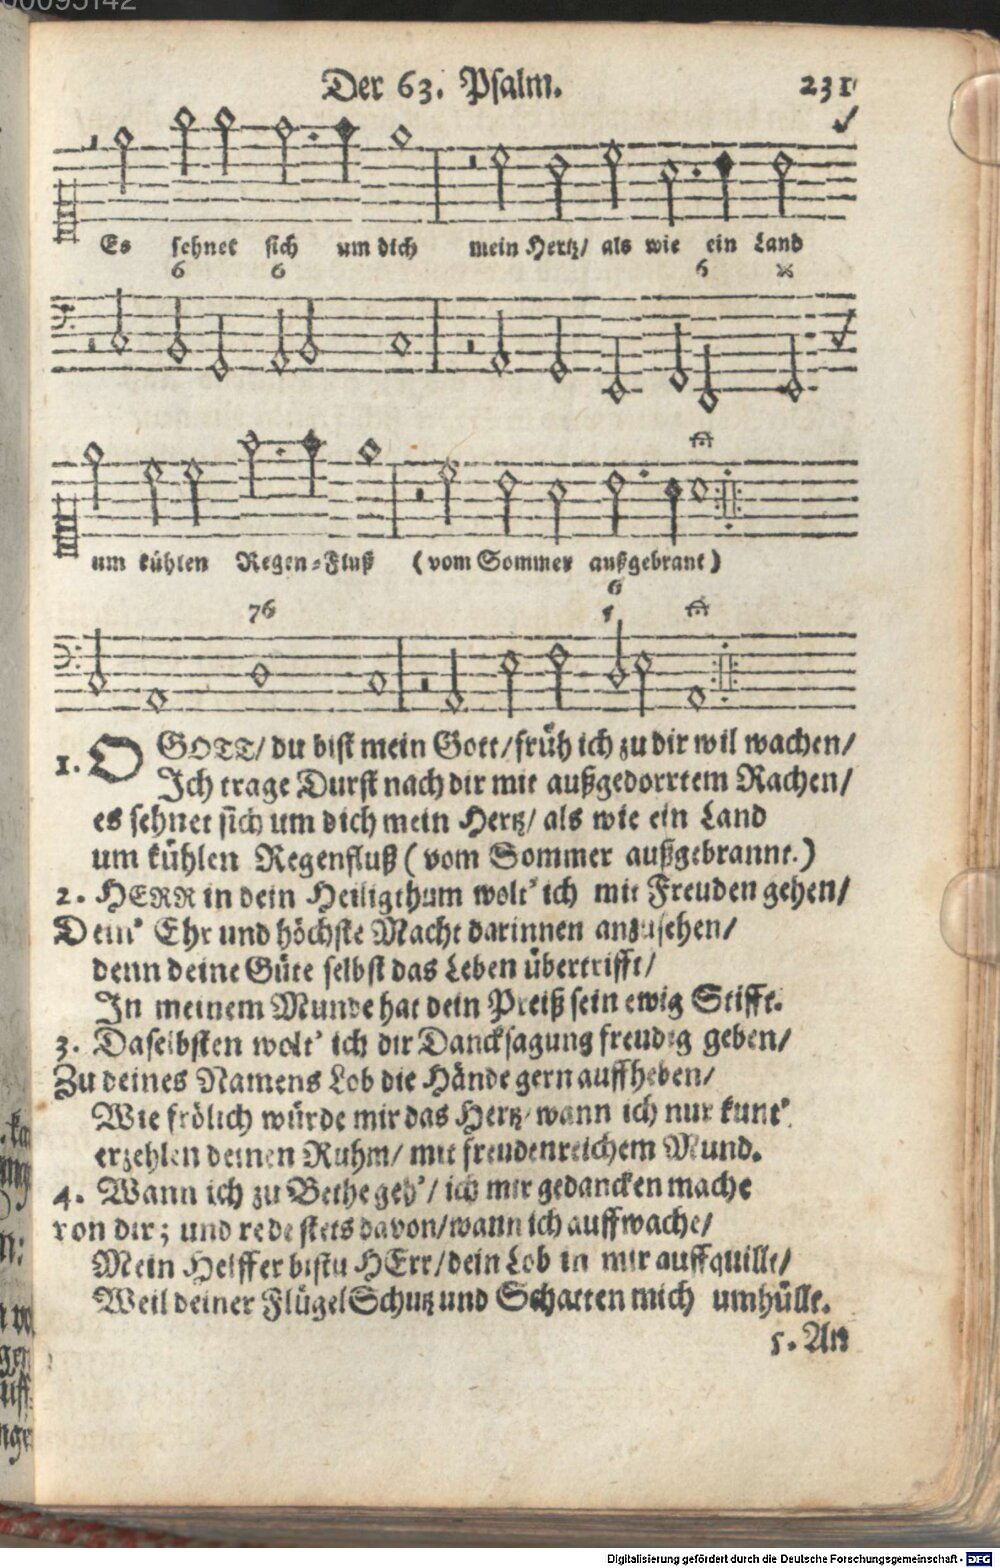 00095142
Der 63. Psalm. 231
Es sehnet sich um dich mein Hertz/ als wie ein Land
6 6 6
um kühlen Regen-Fluß (vom Sommer außgebrant)
6
76 5
1. O GOTT/ du bist mein Gott/ früh ich zu dir wil wachen/
Ich trage Durst nach dir mit außgedorrtem Rachen/
es sehnet sich um dich mein Hertz/ als wie ein Land
um kühlen Regenfluß (vom Sommer außgebrannt.)
2. HERR in dein Heiligthum wolt' ich mit Freuden gehen/
Dein' Ehr und höchste Macht darinnen anzusehen/
denn deine Güte selbst das Leben übertrifft/
In meinem Munde hat dein Preiß sein ewig Stifft.
3. Daselbsten wolt' ich dir Dancksagung freudig geben/
Zu deines Namens Lob die Hände gern auffheben/
Wie frölich würde mir das Hertz/ wann ich nur kunt'
erzehlen deinen Ruhm/ mit freudenreichem Mund.
4. Wann ich zu Bethe geh'/ ich mir gedancken mache
von dir; und rede stets davon/ wann ich auffwache/
Mein Helffer bistu HErr/ dein Lob in mir auffquillt/
Weil deiner Flügel Schutz und Schatten mich umhüllt.
5. An
Digitalisierung gefördert durch die Deutsche Forschungsgemeinschaft - DFG